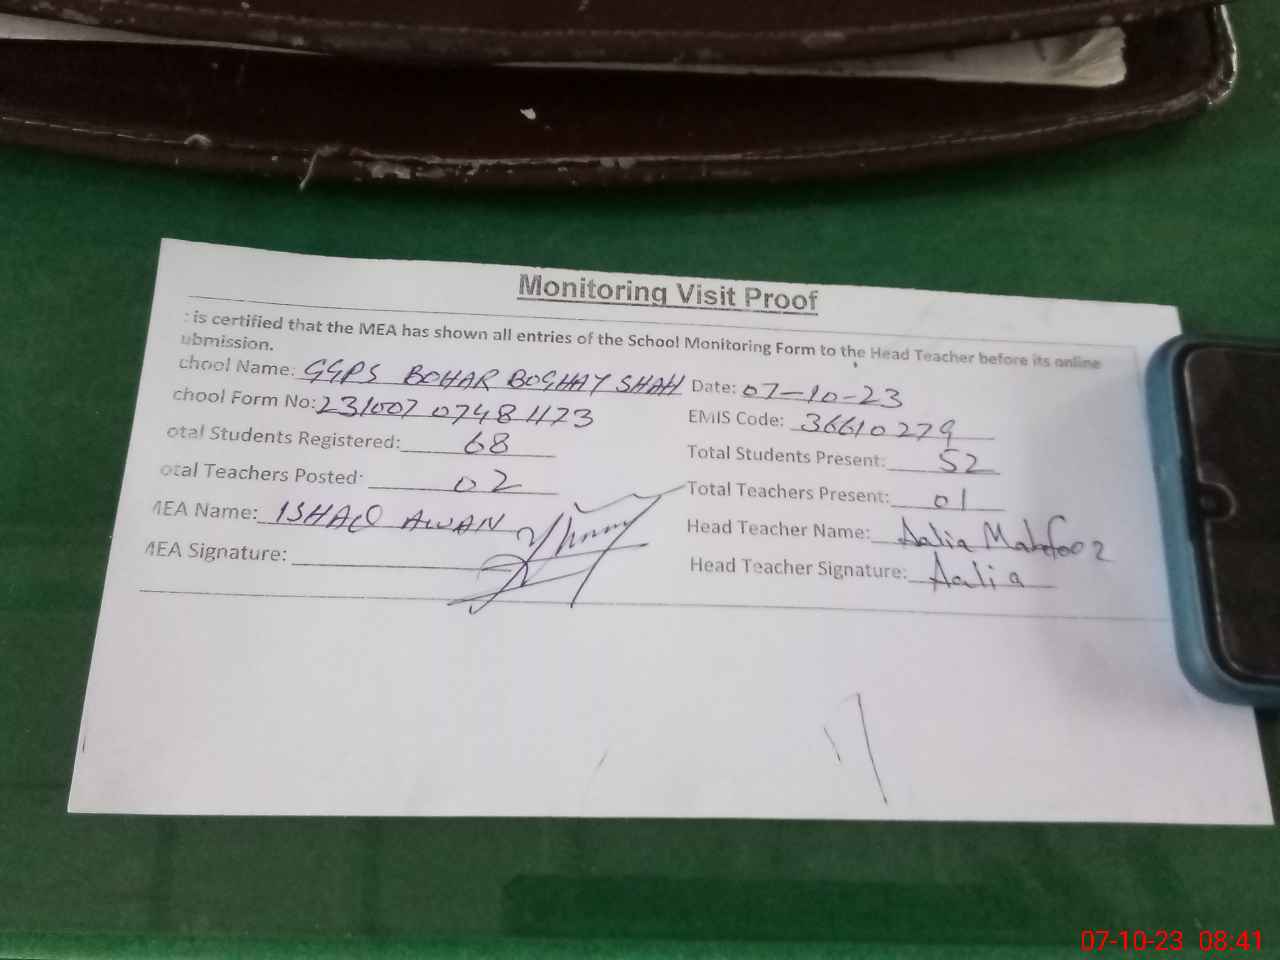 Monitoring Visit Proof
is certified that the MEA has shown all entries of the School Monitoring Form to the Head Teacher before its online
ubmission.
chool Name: GGPS BOHAR BOGHAY SHAH Date: 07-10-23
chool Form No: 231007 0748 1123 EMIS Code: 36610279
otal Students Registered: 68 Total Students Present: 52
otal Teachers Posted: 02 Total Teachers Present: 01
MEA Name: ISHAQ AWAN Head Teacher Name: Aalia Mahfooz
MEA Signature: Head Teacher Signature: Aalia
07-10-23 08:41